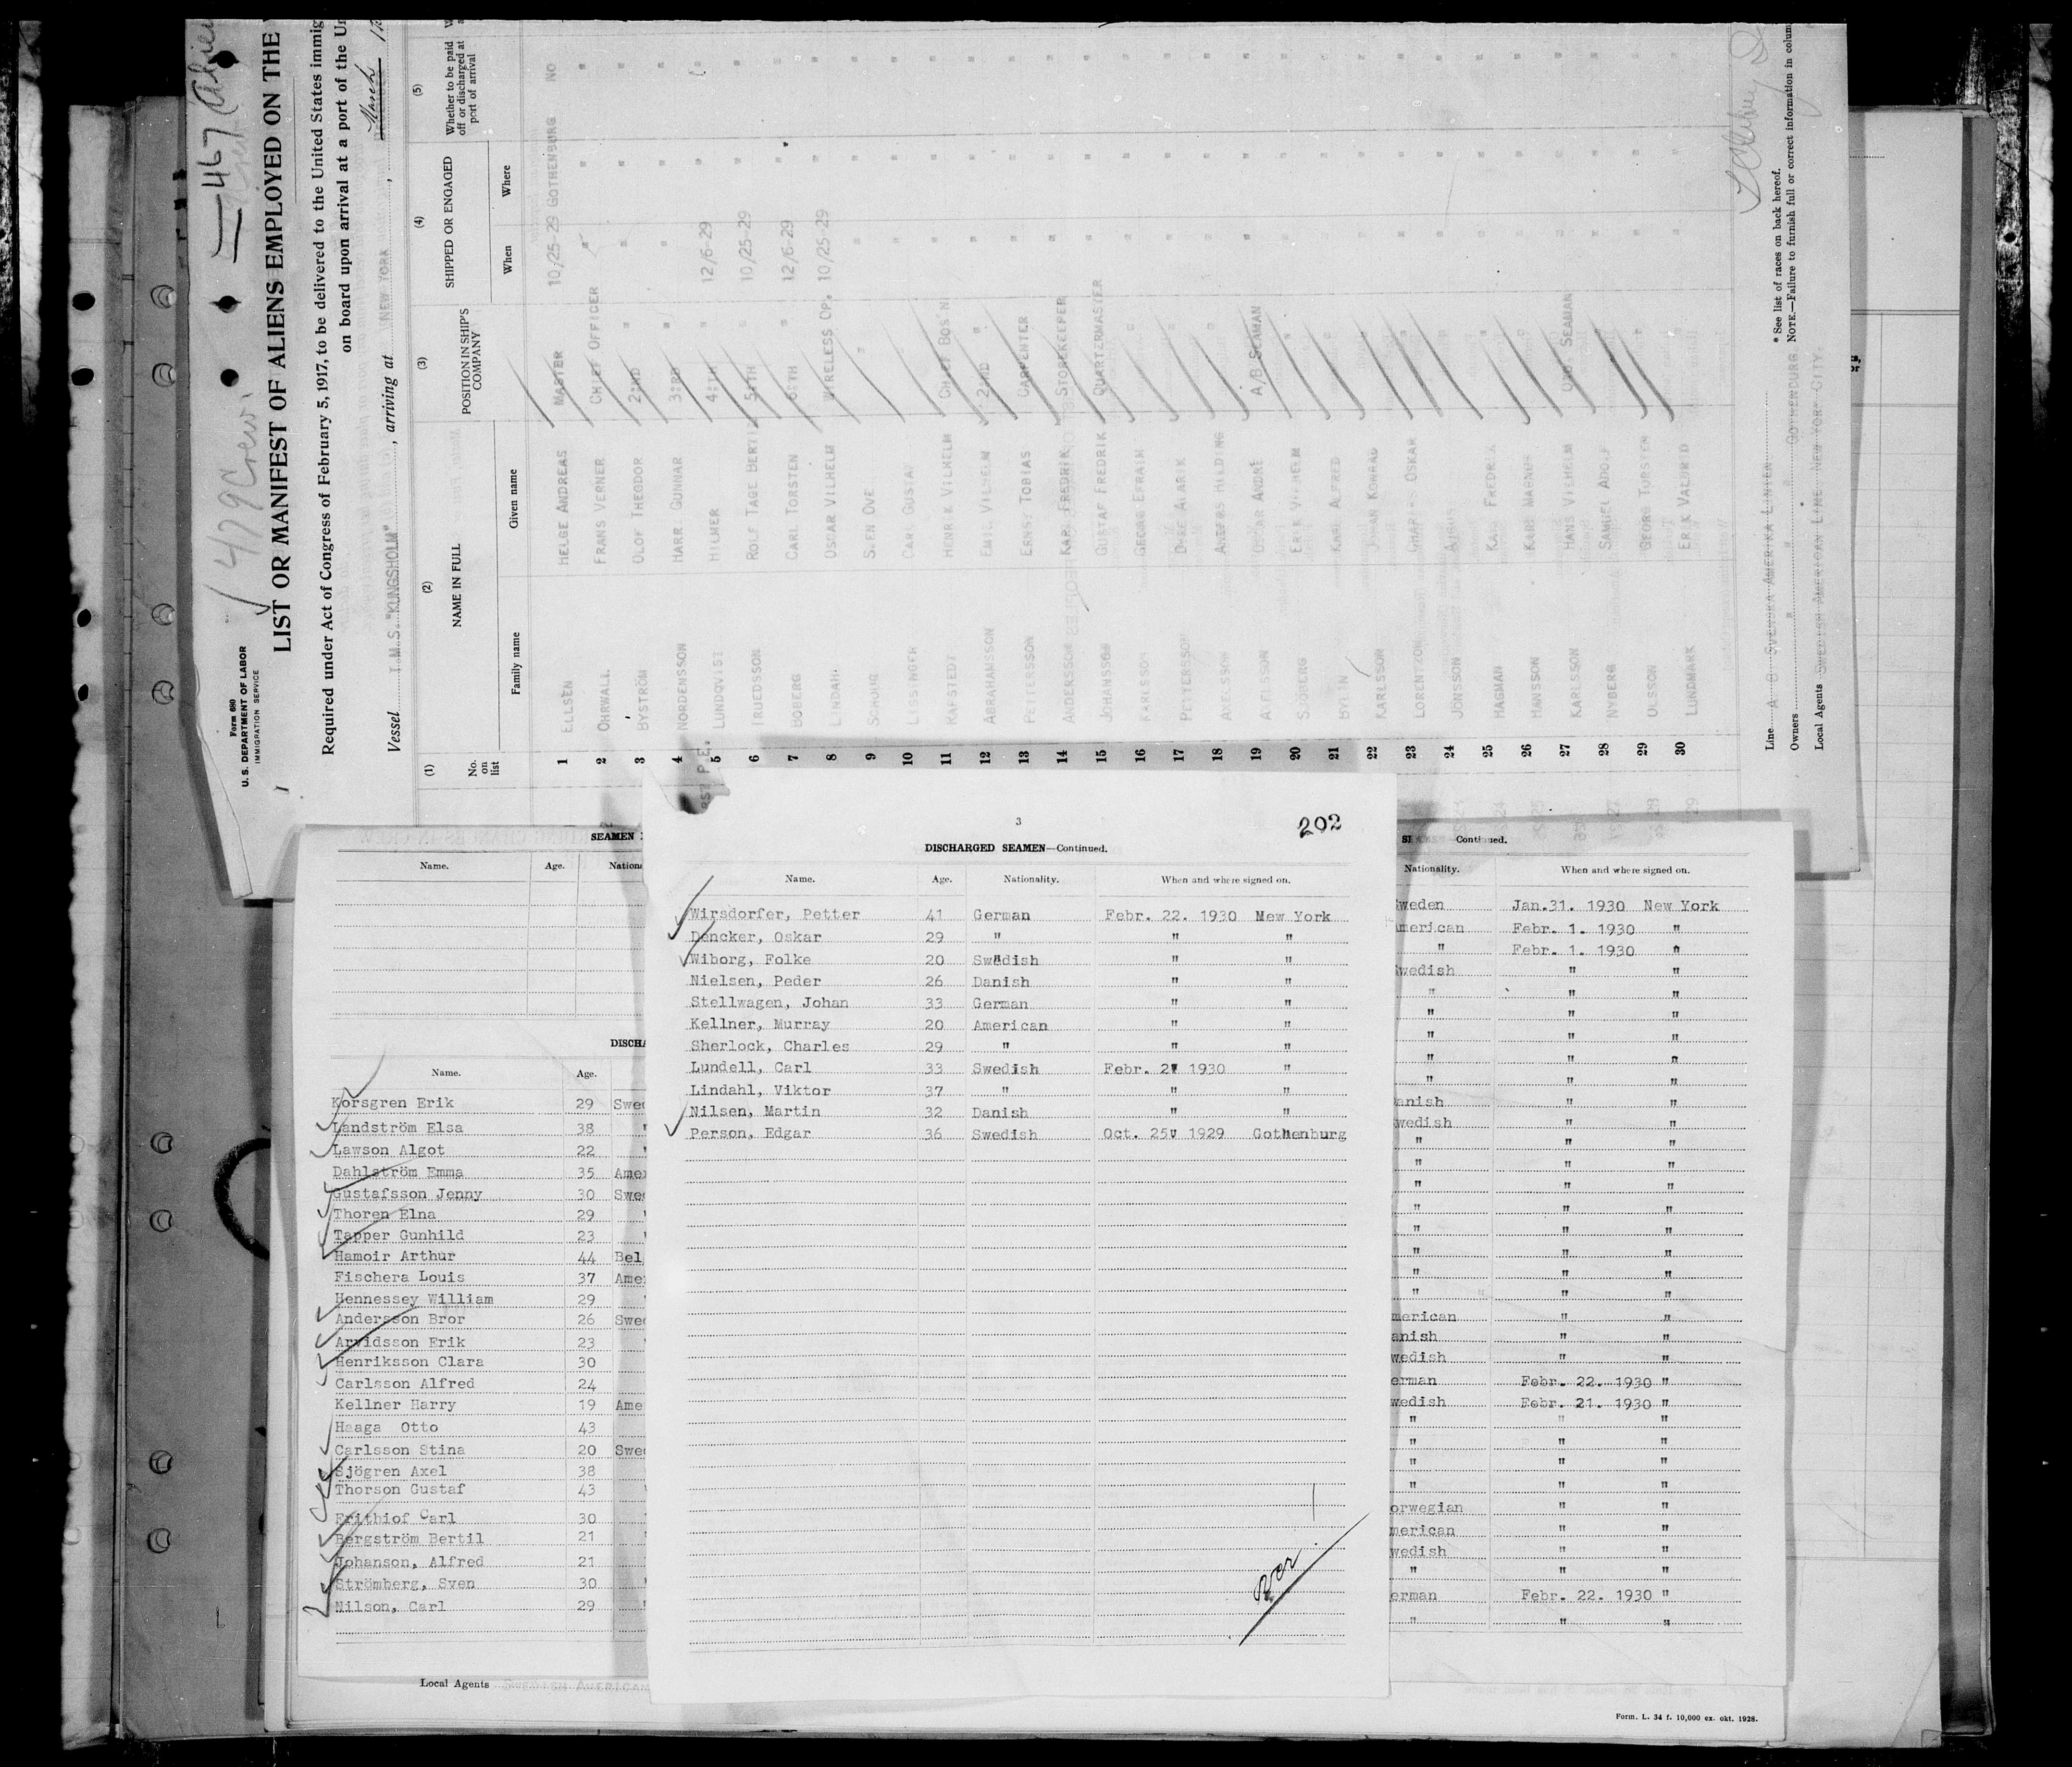 467
479 Crew
Form 680
U. S. DEPARTMENT OF LABOR
IMMIGRATION SERVICE
LIST OR MANIFEST OF ALIENS EMPLOYED ON THE
Required under Act of Congress of February 5, 1917, to be delivered to the United States immig
on board upon arrival at a port of the Un
Vessel T.M.S. "KUNGSHOLM", arriving at NEW YORK, March
(1) (2) (3) (4) (5)
No. on list NAME IN FULL POSITION IN SHIP'S COMPANY SHIPPED OR ENGAGED Whether to be paid off or discharged at port of arrival
Family name Given name When Where
1 ELLSEN HELGE ANDREAS MASTER 10/25-29 GOTHENBURG NO
2 OHRWALL FRANS VERNER CHIEF OFFICER " " "
3 BYSTROM OLOF THEODOR 2:ND " " " "
4 NORDENSSON HARR GUNNAR 3:RD " " " "
5 LUNDQVIST HILMER 4:TH " 12/6-29 "
6 TRUEDSSON ROLF TAGE BERTIL 5:TH 10/25-29 " "
7 BOBERG CARL TORSTEN 6:TH " 12/6-29 " "
8 LINDAHL OSCAR VILHELM WIRELESS OP. 10/25-29 " "
9 SCHOUG SVEN OVE " " " "
10 LESSINGER CARL GUSTAF " " "
11 RAFSTEDT HENRIK VILHELM CHIEF BOS'N " " "
12 ABRAHAMSSON EMIL VILHELM 2:ND " " " "
13 PETTERSSON ERNST TOBIAS CARPENTER " " "
14 ANDERSSON KARL FREDRIK STOREKEEPER " " "
15 JOHANSSON GUSTAF FREDRIK QUARTERMASTER " "
16 KARLSSON GEORG EFRAIM " " " "
17 PETTERSSON ALARIK " " " "
18 AXELSSON ANDERS HILDING " " " "
19 AXELSSON OSCAR ANDRE A/B SEAMAN " " "
20 SJOBERG ERIK VILHELM " " " "
21 KARL ALFRED " " " "
22 KARLSSON JOHAN KONRAD " " " "
23 LORENTZON CHARLES OSKAR " " " "
24 JONSSON " " " "
25 HAGMAN KARL FREDRIK " " "
26 HANSSON KARL MAGNUS " " " "
27 KARLSSON HANS VILHELM ORD. SEAMAN " " "
28 NYBERG SAMUEL ADOLF " " " "
29 OLSSON GEORG TORSTEN " " " "
30 LUNDMARK ERIK VALFRID " " "
Line A B SVENSKA AMERIKA LINIEN
Owners " " " GOTHENBURG
Local Agents SWEDISH AMERICAN LINE NEW YORK CITY.
* See list of races on back hereof.
NOTE.—Failure to furnish full or correct information in colum
SEAMEN
Name. Age. Nationa
DISCHA
Name. Age.
Korsgren Erik 29 Swed
Landström Elsa 38
Lawson Algot 22
Dahlström Emma 35 Amer
Gustafsson Jenny 30 Swed
Thoren Elna 29
Tapper Gunhild 23
Hamoir Arthur 44 Bel
Fischera Louis 37 Amer
Hennessey William 29
Andersson Bror 26 Swed
Arvidsson Erik 23
Henriksson Clara 30
Carlsson Alfred 24
Kellner Harry 19 Ame
Haaga Otto 43
Carlsson Stina 20 Swed
Sjögren Axel 38
Thorson Gustaf 43
Frithiof Carl 30
Bergström Bertil 21
Johanson, Alfred 21
Strömberg, Sven 30
Nilson, Carl 29
Local Agents SWEDISH AMERICAN
3
202
DISCHARGED SEAMEN—Continued.
Name. Age. Nationality. When and where signed on.
Wirsdorfer, Petter 41 German Febr. 22. 1930 New York
Dencker, Oskar 29 " " "
Wiborg, Folke 20 Swedish " "
Nielsen, Peder 26 Danish " "
Stellwagen, Johan 33 German " "
Kellner, Murray 20 American " "
Sherlock, Charles 29 " " "
Lundell, Carl 33 Swedish Febr. 27 1930 "
Lindahl, Viktor 37 " " "
Nilsen, Martin 32 Danish " "
Person, Edgar 36 Swedish Oct. 25. 1929 Gothenburg
Continued.
Nationality. When and where signed on.
Sweden Jan.31. 1930 New York
American Febr. 1. 1930 "
" Febr. 1. 1930 "
Swedish " "
" " "
" " "
" " "
" " "
" " "
anish " "
wedish " "
" " "
" " "
" " "
" " "
" " "
" " "
" " "
" " "
merican " "
anish " "
wedish " "
erman Febr. 22. 1930 "
wedish Febr. 21. 1930 "
" " "
" " "
" " "
" " "
orwegian " "
merican " "
wedish " "
" " "
erman Febr. 22. 1930 "
" " "
Form. L. 34 f. 10,000 ex. okt. 1928.